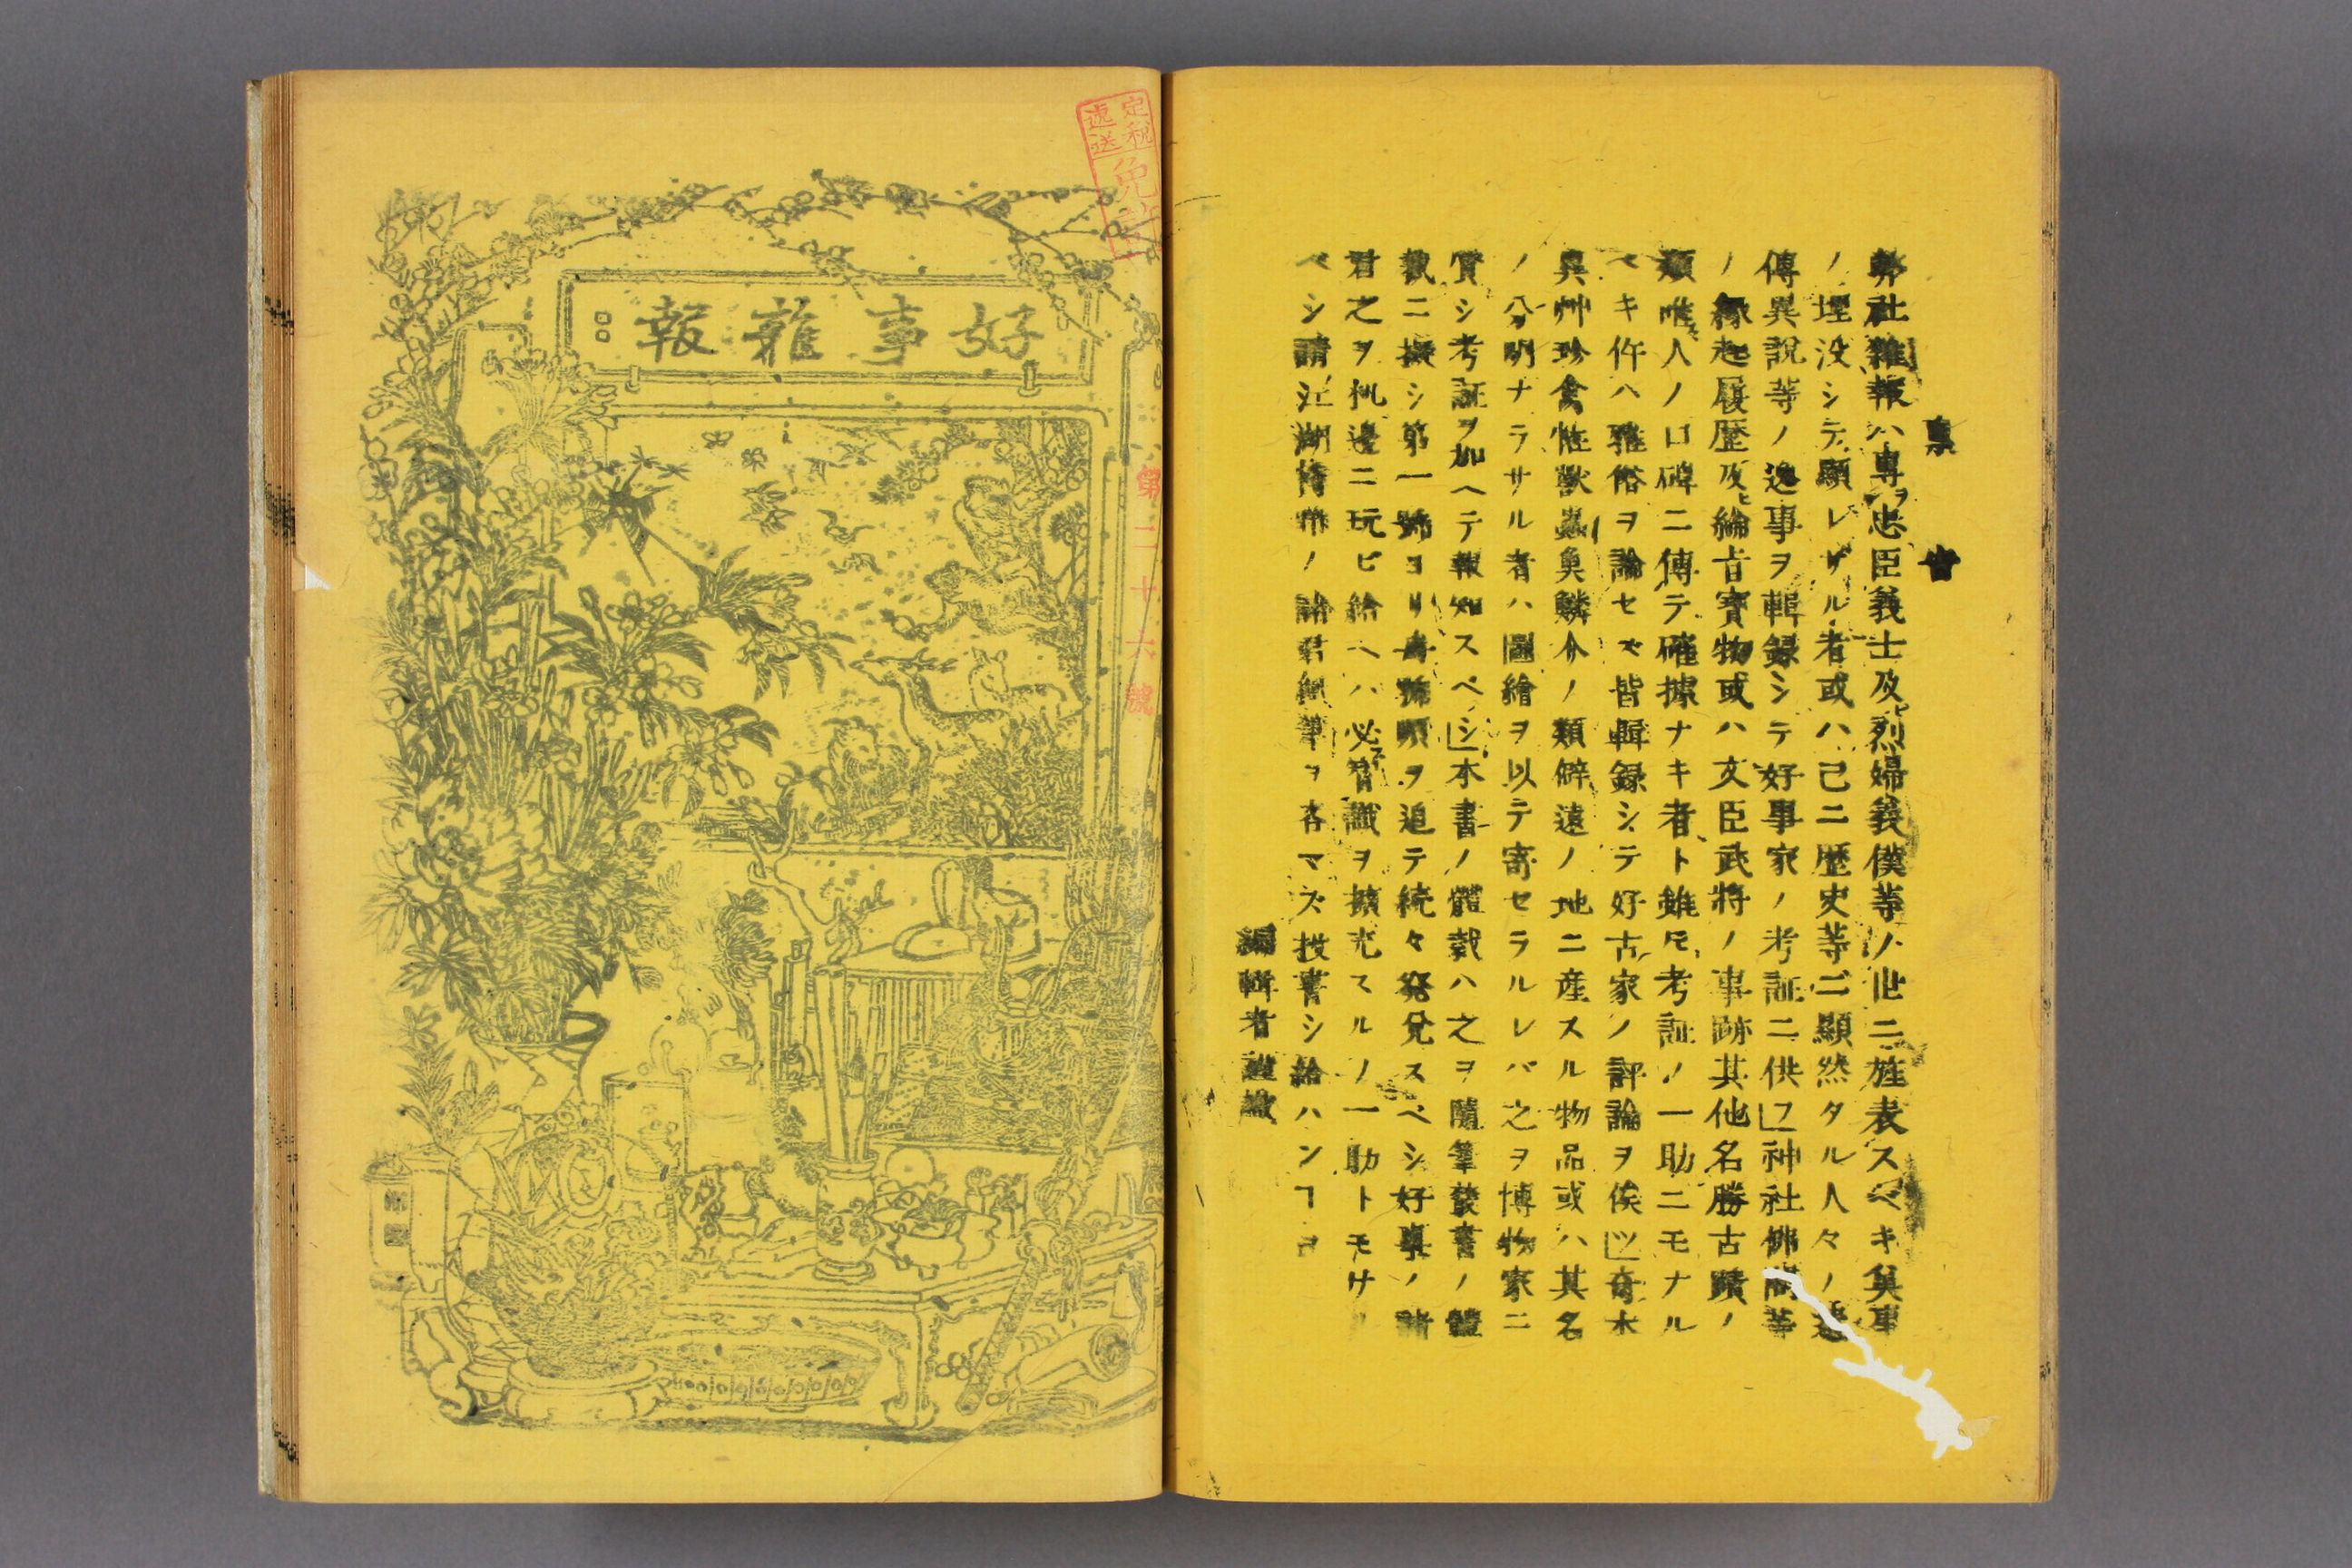 稟告
弊社雜報ハ專ヲ忠臣義士及ヒ烈婦義僕等ノ世ニ旌表スベキ異事
ノ埋没シテ顯レザル者或ハ己ニ歴史等ニ顯然タル人々ノ遺
傳異説等ノ逸事ヲ輯録シテ好事家ノ考証ニ供フ」神社佛閣等
ノ縁起履歴及ヒ綸旨寳物或ハ文臣武将ノ事跡其他名勝古蹟ノ
類唯人ノ口碑ニ傳テ確據ナキ者ト雖モ考証ノ一助ニモナル
ベキ件ハ雅俗ヲ論セズ皆輯録シテ好古家ノ評論ヲ俟ツ」奇木
異艸珍禽恠獣蟲魚鱗介ノ類僻遠ノ地ニ産スル物品或ハ其名
ノ分明ナラサル者ハ圖繪ヲ以テ寄セラルレバ之ヲ博物家ニ
質シ考証ヲ加ヘテ報知スベシ」本書ノ體裁ハ之ヲ隨筆叢書ノ體
裁ニ擬シ第一號ヨリ毎號順ヲ追テ続々発兌スベシ好事ノ諸
君之ヲ机邊ニ玩ビ給ヘハ必ス智識ヲ擴充スルノ一助トモサル
ベシ請江湖博物ノ諸君紙筆ヲ吝マズ投書シ給ハンヿヲ
編輯者謹識
定税
逓送
免許
好事雜報
第二十六號